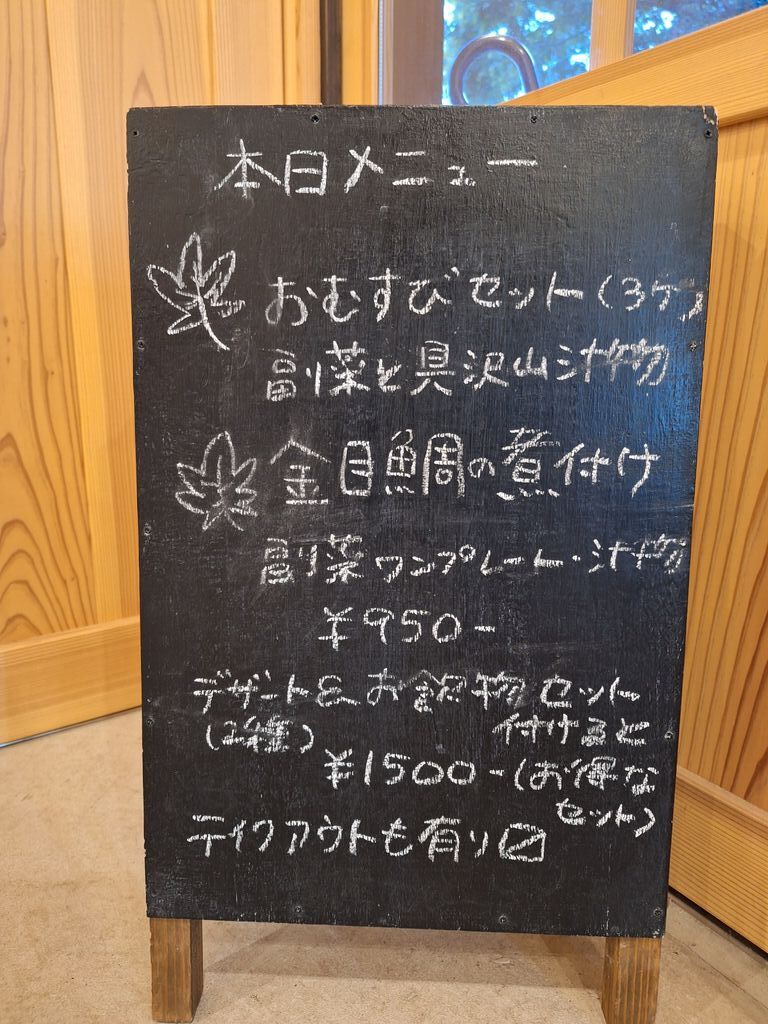 本日メニュー
おむすびセット(3ケ)
副菜と具沢山汁物
金目鯛の煮付け
副菜ワンプレート・汁物
¥950-
デザート&お飲物セット
(2種)
付けると
¥1500-(お得な
セット)
テイクアウトも有り〼